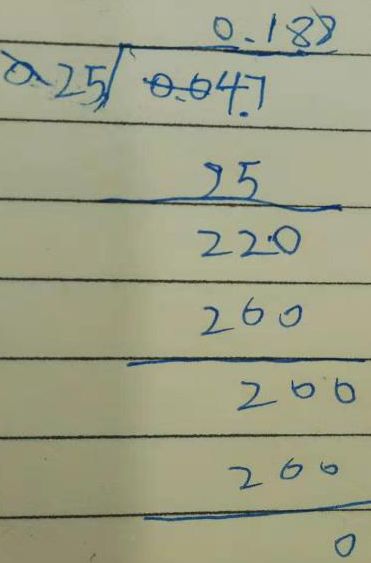 0.188
0.25 0.047
25
220
200
200
200
0